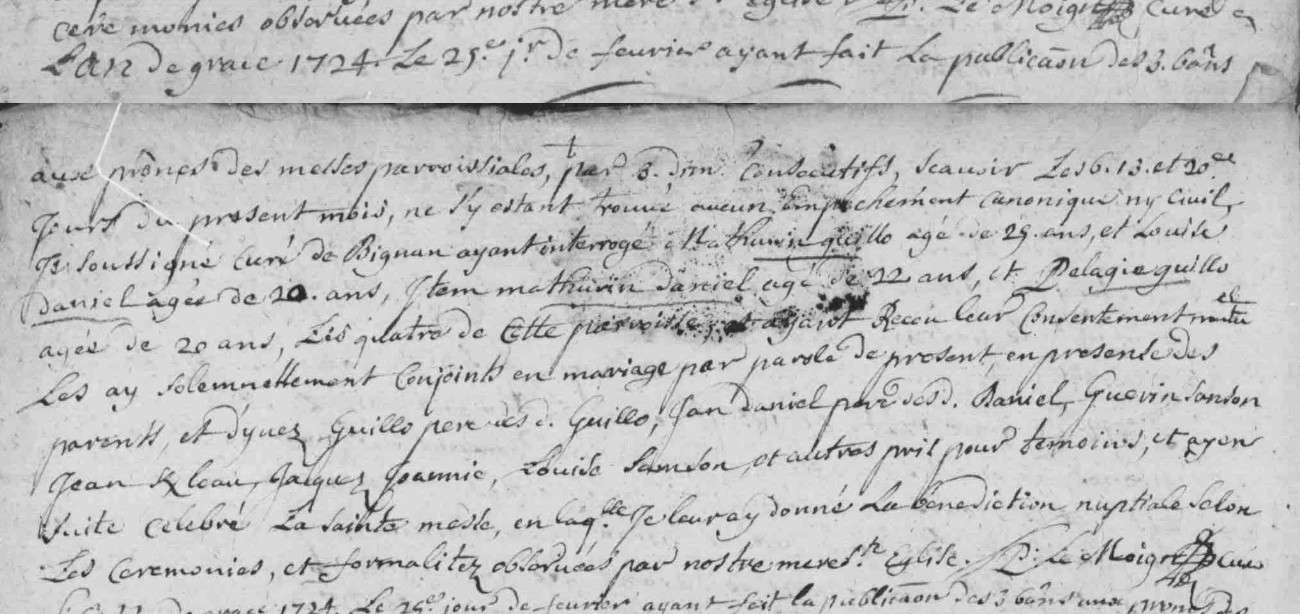 ceremonies observées par nostre mere Ste église P. Le Moign curé
L'an de grace 1724. Le 25.e jr. de feurier ayant fait La publicaõn des 3. bãns
aux prônes des messes parroissiales, par 3. dim. Consecutifs, scauoir Les 6. 13. et 20.es
Jours du present mois, ne s'y estant trouué aucun empechement canonique ny Ciuil,
Je soussigné curé de Bignan ayant interrogé Mathurin guillo agé de 25. ans, et Louise
daniel agée de 20. ans, Item mathurin daniel agé de 22 ans, et Pelagie guillo
agée de 20 ans, Les quatre de Cette parroisse, et ayant Receu leur Consentement mutuel
Les ay solemnellement Conjoints en mariage par parole de present, en presense des
parents, et d'yuez Guillo pere des d. Guillo, Jan daniel pere des d. Daniel, Guerin Sanson
Jean Kleau, Jacquez Joannic, Louise Samson, et autres pris pour temoins, et ayen
suite celebré La sainte messe, en laq.lle Je leur ay donné La bénediction nuptiale selon
Les Ceremonies, et formalitez obseruées par nostre mere s.te Eglise. P. Le Moign curé
L'an de grace 1724. Le 25e jour de feurier ayant fait la publicaõn des 3 bãns aux prones